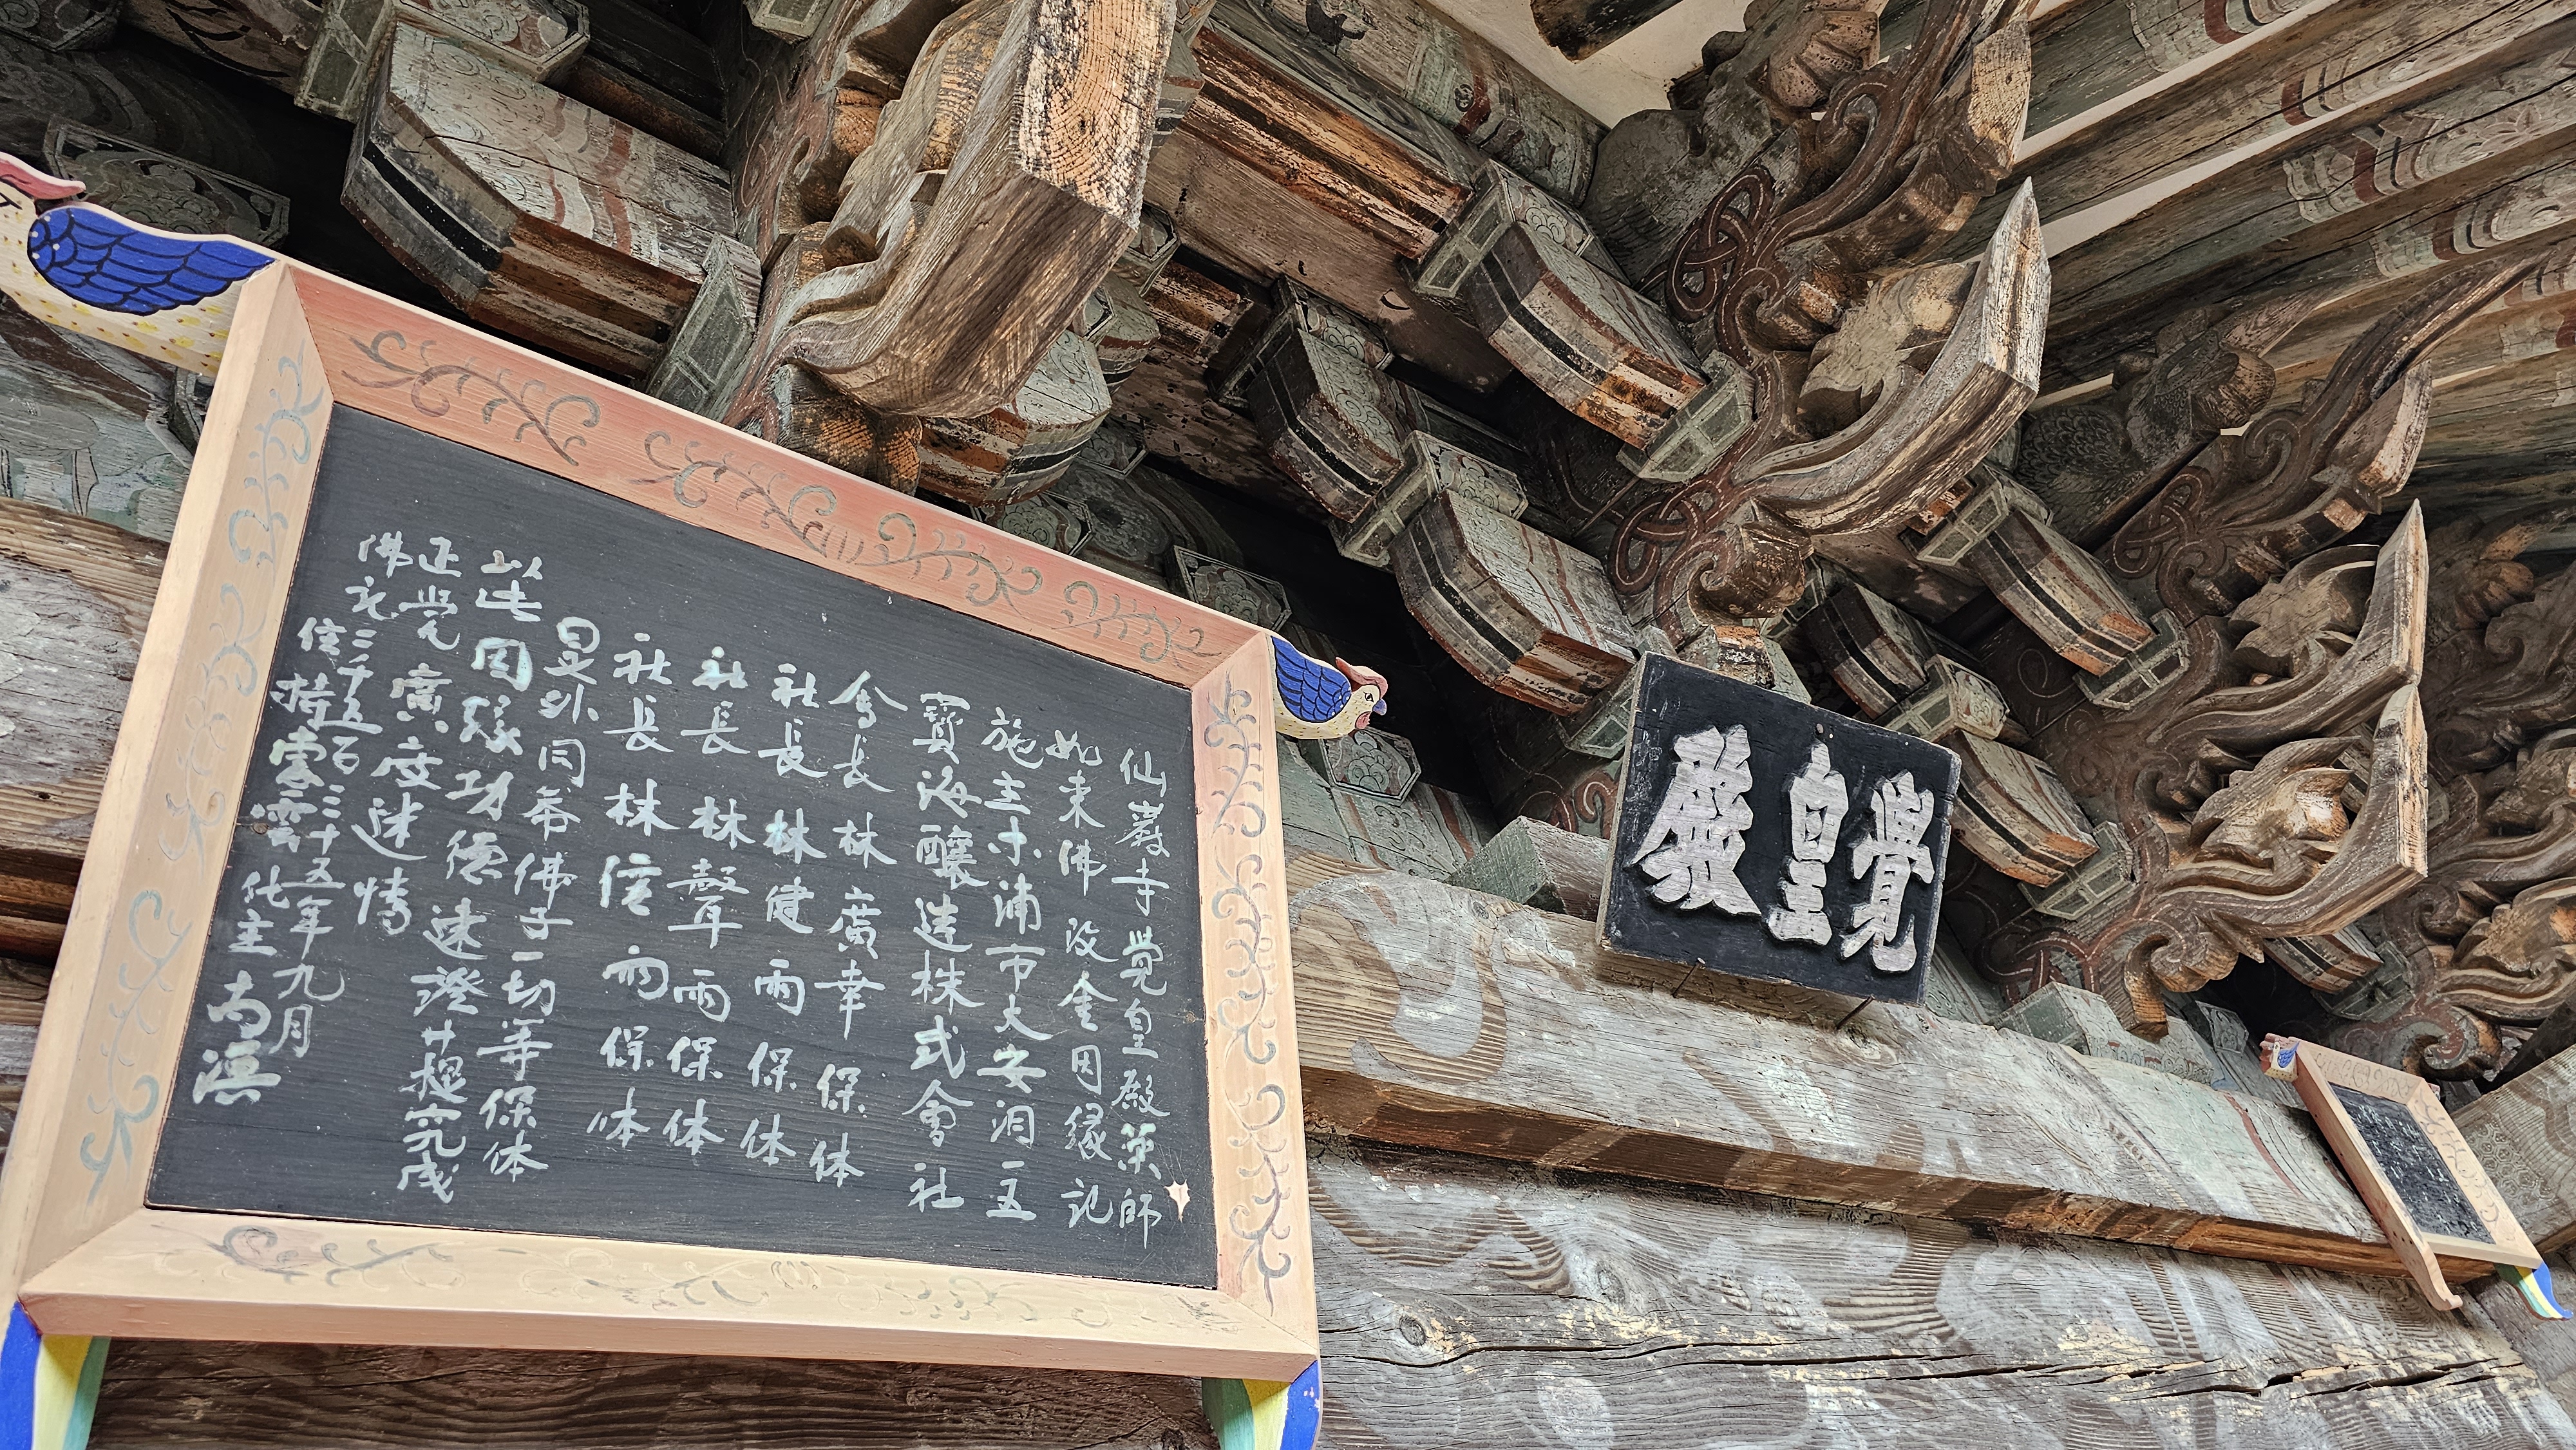 仙巖寺覺皇殿藥師
如来佛改金因縁記
施主木浦市大安洞五
寶海釀造株式會社
會長林廣幸保体
社長林健雨保体
社長林聲雨保体
社長林信雨保体
是外同參佛子一切等保体
以此因緣功德速澄菩提究成
正覺廣度迷情
佛紀三千五百三十五年九月
住持雲化主
覺皇殿